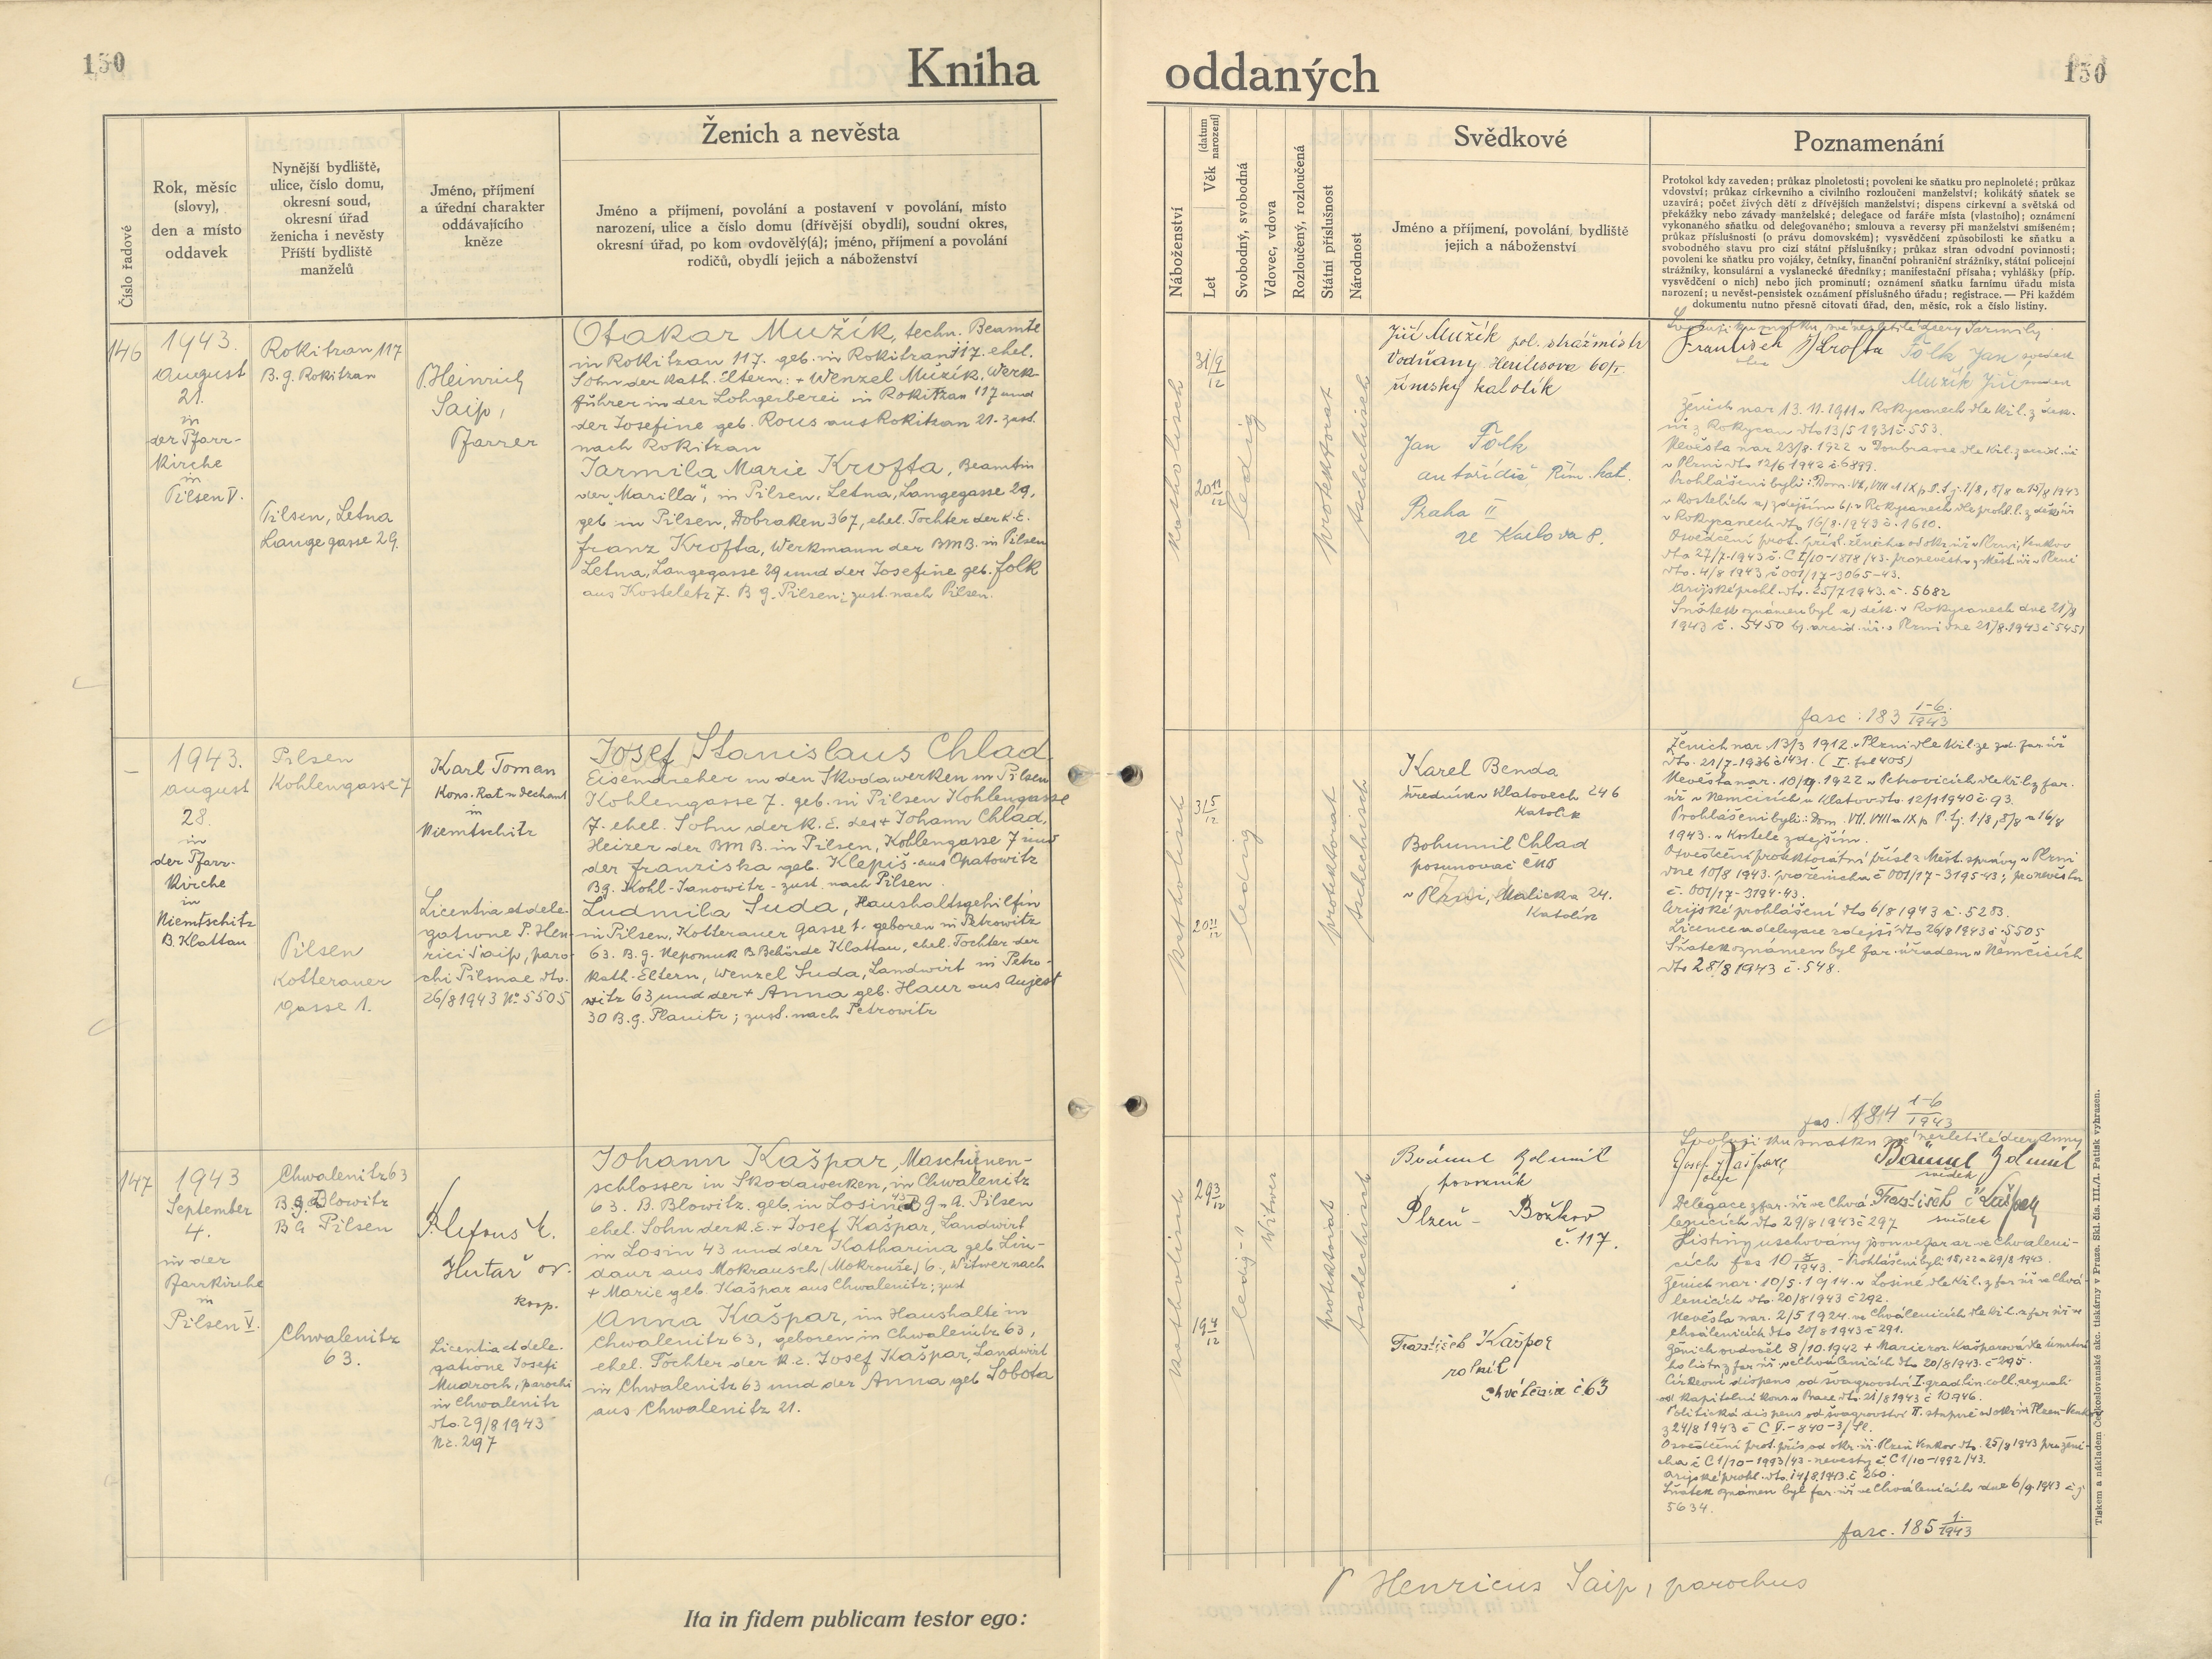 150
Kniha
Číslo řadové
Rok, měsíc
(slovy),
den a místo
oddavek
Nynější bydliště,
ulice, číslo domu,
okresní soud,
okresní úřad
ženicha i nevěsty
Příští bydliště
manželů
Jméno, příjmení
a úřední charakter
oddávajícího
kněze
Ženich a nevěsta
Jméno a příjmení, povolání a postavení v povolání, místo
narození, ulice a číslo domu (dřívější obydlí), soudní okres,
okresní úřad, po kom ovdovělý(á); jméno, příjmení a povolání
rodičů, obydlí jejich a náboženství
146
1943.
August
21.
in
der Pfarr-
kirche
in
Pilsen V.
Rokitzan 117
B. g. Rokitzan
Pilsen, Letna
Langegasse 29.
P. Heinrich
Saip,
Pfarrer
Otakar Mužík, techn. Beamte
in Rokitzan 117. geb. in Rokitzan 117. ehel.
Sohn der kath. Eltern: + Wenzel Mužík, Werk-
führer in der Lohgerberei in Rokitzan 117 und
der Josefine geb. Rous aus Rokitzan 21. zust.
nach Rokitzan
Jarmila Marie Krofta, Beamtin
der "Marilla", in Pilsen, Letna, Langegasse 29,
geb. in Pilsen, Dobraken 367, ehel. Tochter der k. E.
Franz Krofta, Werkmann der BMB. in Pilsen
Letna, Langegasse 29 und der Josefine geb. Folk
aus Kosteletz 7. B g. Pilsen; zust. nach Pilsen.
–
1943.
August
28.
in
der Pfarr-
kirche
in
Niemtschitz
B. Klattau
Pilsen
Kohlengasse 7
Pilsen
Kotterauer
gasse 1.
Karl Toman
Kons. Rat u Dechant
in
Niemtschitz
Licentia et dele-
gatione P. Hen-
rici Saip, paro-
chi Pilsnae dto.
26/8 1943 No 5505
Josef Stanislaus Chlad
Eisendreher in den Skodawerken in Pilsen
Kohlengasse 7. geb. in Pilsen Kohlengasse
7. ehel. Sohn der k. E. des + Johann Chlad,
Heizer der BMB. in Pilsen, Kohlengasse 7 und
der Franziska geb. Klepiš aus Opatowitz
Bg. Kohl-Janowitz - zust. nach Pilsen.
Ludmila Suda, Haushaltsgehilfin
in Pilsen, Kotterauer Gasse 1. geboren in Petrowitz
63. B. g. Nepomuk B. Behörde Klattau, ehel. Tochter der
kath. Eltern, Wenzel Suda, Landwirt in Petro-
witz 63 und der + Anna geb. Haur aus Aujest
30 B. g. Planitz; zust. nach Petrowitz
147
1943
September
4.
in der
Pfarrkirche
in
Pilsen V.
Chwalenitz 63
B. g. Blowitz
BG Pilsen
Chwalenitz
63.
Hutař
koop.
Licentia et dele-
gatione Josefi
Mudroch, parochi
in Chwalenitz
dto. 29/8 1943
Nr. 297
Johann Kašpar, Maschinen-
schlosser in Skodawerken, in Chwalenitz
63. B. Blowitz. geb. in Losina 43 B g. A. Pilsen
ehel. Sohn der k. E. + Josef Kašpar, Landwirt
in Losin 43 und der Katharina geb. Lin-
daur aus Mokrausch (Mokrouše) 6., Witwer nach
+ Marie geb. Kašpar aus Chwalenitz; zust
Anna Kašpar, im Haushalte in
Chwalenitz 63, geboren in Chwalenitz 63,
ehel. Tochter der k. E. Josef Kašpar, Landwirt
in Chwalenitz 63 und der Anna geb. Sobota
aus Chwalenitz 21.
Ita in fidem publicam testor ego:
oddaných
150
Náboženství
Věk (datum narození)
Let
Svobodný, svobodná
Vdovec, vdova
Rozloučený, rozloučená
Státní příslušnost
Národnost
Svědkové
Jméno a příjmení, povolání, bydliště
jejich a náboženství
Poznamenání
Protokol kdy zaveden; průkaz plnoletosti; povolení ke sňatku pro neplnoleté; průkaz
vdovství; průkaz církevního a civilního rozloučení manželství; kolikátý sňatek se
uzavírá; počet živých dětí z dřívějších manželství; dispens církevní a světská od
překážky nebo závady manželské; delegace od faráře místa (vlastního); oznámení
vykonaného sňatku od delegovaného; smlouva a reversy při manželství smíšeném;
průkaz příslušnosti (o právu domovském); vysvědčení způsobilosti ke sňatku a
svobodného stavu pro cizí státní příslušníky; průkaz stran odvodní povinnosti;
povolení ke sňatku pro vojáky, četníky, finanční pohraniční strážníky, státní policejní
strážníky, konsulární a vyslanecké úředníky; manifestační přísaha; vyhlášky (příp.
vysvědčení o nich) nebo jich prominutí; oznámení sňatku farnímu úřadu místa
narození; u nevěst-pensistek oznámení příslušného úřadu; registrace. — Při každém
dokumentu nutno přesně citovati úřad, den, měsíc, rok a číslo listiny.
katholisch
31 9/12
20 11/12
ledig
protektorat
tschechisch
Jiří Mužík pol. strážmistr
Vodňany Heulisova 60/I.
římský katolík
Jan Folk
autořidič Řím. kat.
Praha II
ze Karlova 8.
Svoluji ku sňatku své nezletilé dcery Jarmily
František Krofta
otec
Folk Jan svědek
Mužík Jiří svědek
Ženich nar 13. 11. 1911 v Rokycanech dle kř. l. z děk.
úř. z Rokycan dto 13/5 1931 č. 553.
Nevěsta nar. 23/8. 1922 v Doubravce dle kř. l. z arcid. úř.
v Plzni dto 12/6 1942 č. 6899.
Prohlášení byli: Dom. VII, VIII a IX p. P. t. j. 1/8, 8/8 a 15/8 1943
v kostelích a) zdejším b) v Rokycanech dle prohl. l. z děk. úř.
v Rokycanech dto 16/8. 1943 č. 1610.
Osvědčení prot. přísl. ženicha od okr. úř. v Plzni, Venkov
dto 27/7. 1943 č. C I/10-1878/43. pro nevěstu z Měst. úř. v Plzni
dto. 4/8 1943 č 001/17-3065-43.
Arijské prohl. dto. 25/7 1943. č. 5682
Sňatek oznámen byl a) děk. v Rokycanech dne 21/8
1943 č. 5450 b) arcid. úř. v Plzni dne 21/8. 1943 č 5451
fasc: 183 1-6/1943
katholisch
31 5/12
20 11/12
ledig
protektorat
tschechisch
Karel Benda
úředník v Klatovech 246
Katolík
Bohumil Chlad
posunovač ČMD
v Plzni, Malická 24.
Katolík
Ženich nar. 13/3 1912 v Plzni dle kř. l. ze zd. far. úř
dto. 21/7-1936 č 1431. ( I. fol 405)
Nevěsta nar. 10/9. 1922 v Petrovicích dle kř. l. z far.
úř v Němčicích u Klatov dto. 12/1 1940 č. 93.
Prohlášeni byli: Dom. VII. VIII a IX p P. tj. 1/8, 8/8 a 16/8
1943. v kostele zdejším.
Osvědčení protektorátní přísl. z Měst. správy v Plzni
dne 10/8 1943. pro ženicha č 001/17-3195-43; pro nevěstu
č. 001/17-3194-43.
Arijské prohlášení dto 6/8 1943 č. 5283.
Licence a delegace zdejší dto 26/8 1943 č. 5505
Sňatek oznámen byl far. úřadem v Němčicích
dto 28/8 1943 č. 548.
fas. 184 1-6/1943
katholisch
29 3/12
19 4/12
ledig
Witwer
protektorat
tschechisch
povozník
Plzeň - Božkov
č. 117.
František Kašpar
rolník
Chválenice č 63
Svoluji ku sňatku své nezletilé dcery Anny
Josef Kašpar
otec
svědek
František Kašpar
svědek
Delegace z far. úř. ve Chvá-
lenicích dto 29/8 1943 č 297
Listiny uschovány jsou ve farar. ve Chváleni-
cích fas 10 /1943. - Prohlášeni byli 15, 22 a 29/8 1943.
Ženich nar. 10/5. 1914. v Losiné dle kř. l. z far úř ve Chvá-
lenicích dto. 20/8 1943 č 292.
Nevěsta nar. 2/5 1924. ve Chválenicích dle kř. l. z far úř ve
Chválenicích dto 20/8 1943 č 291.
Ženich ovdověl 8/10. 1942 + Marie roz. Kašparová dle úmrtní-
ho listu z far úř. ve Chválenicích dto 20/8 1943. č 295.
Církevní dispens od švagrovství I. grad. lin. coll. aequali
od kapitolní kons. v Praze dto. 21/8 1943 č 10.946.
Politická dispens od švagrovství II. stupně od okr. úř Plzeň-Venkov
z 24/8 1943 č C V. - 840-3/Sl.
Osvědčení prot. přís. od okr. úř. Plzeň Venkov dto. 25/8 1943 pro ženi-
cha č C 1/10-1993/43 - nevěsty č. C 1/10-1992/43.
Arijské prohl. dto. 14/8. 1943. č 260.
Sňatek oznámen byl far. úř ve Chválenicích dne 6/9. 1943 č j
5634.
fasc. 185 1./1943
P Henricus Saip, parochus
Tiskem a nákladem Českoslovanské akc. tiskárny v Praze. Skl. čís. III./1. Patisk vyhrazen.